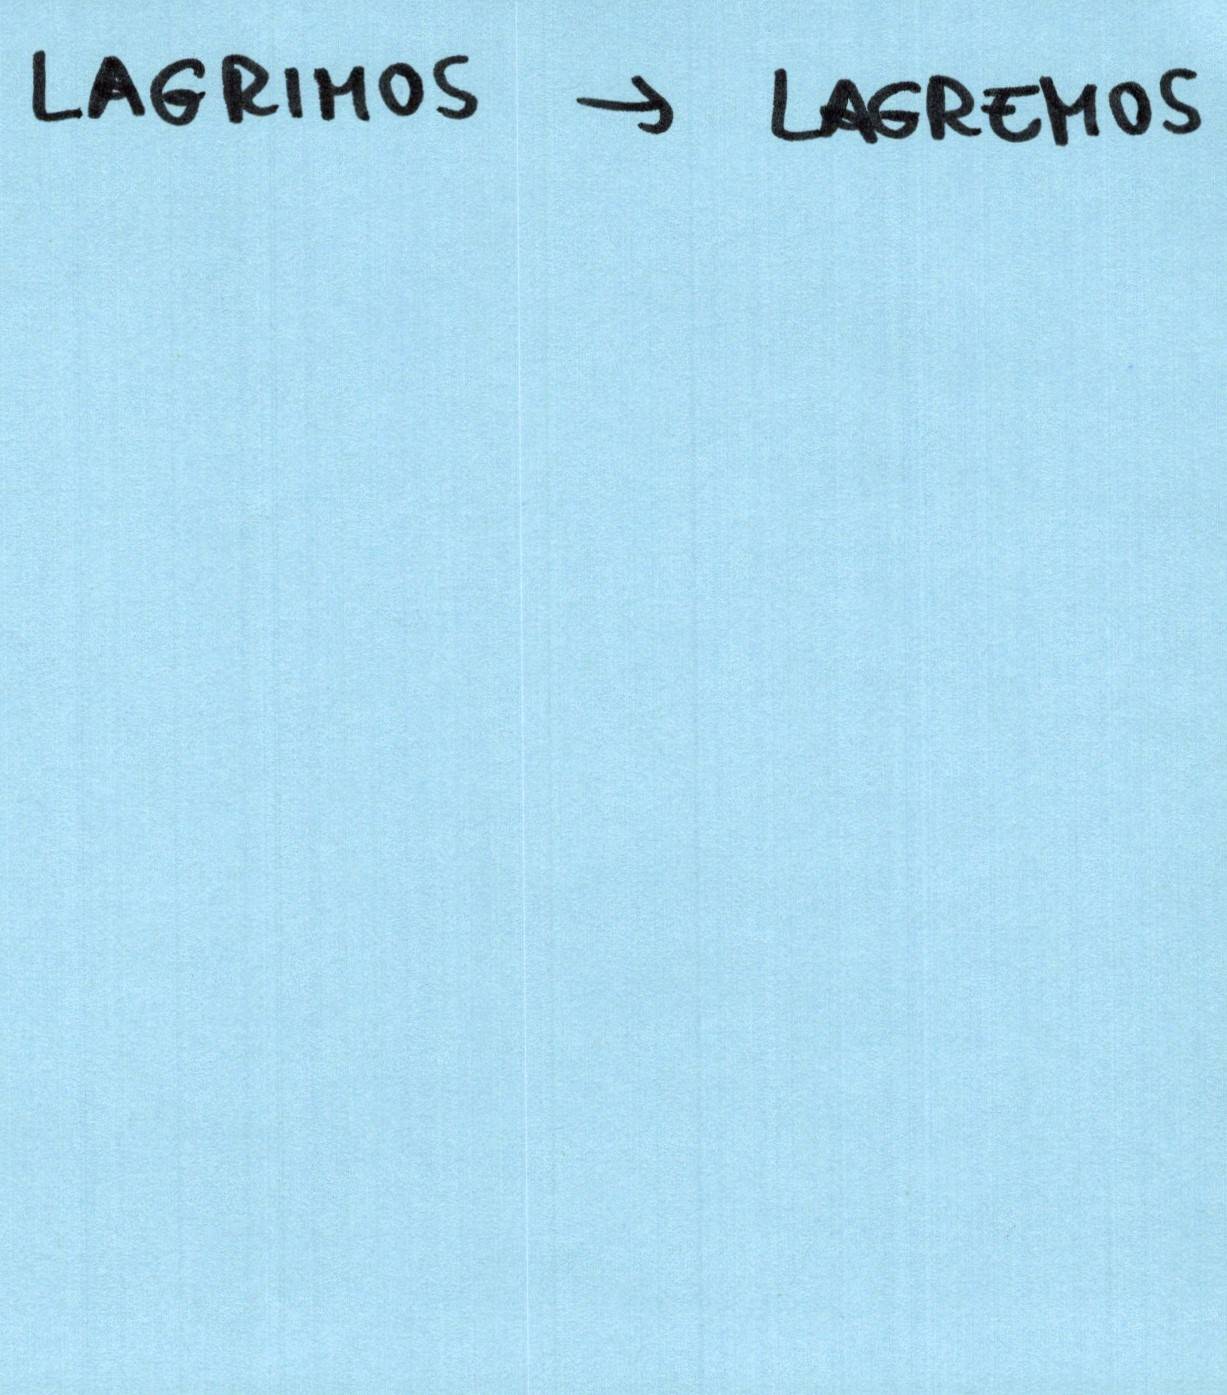 LAGRIMOS → LAGREMOS